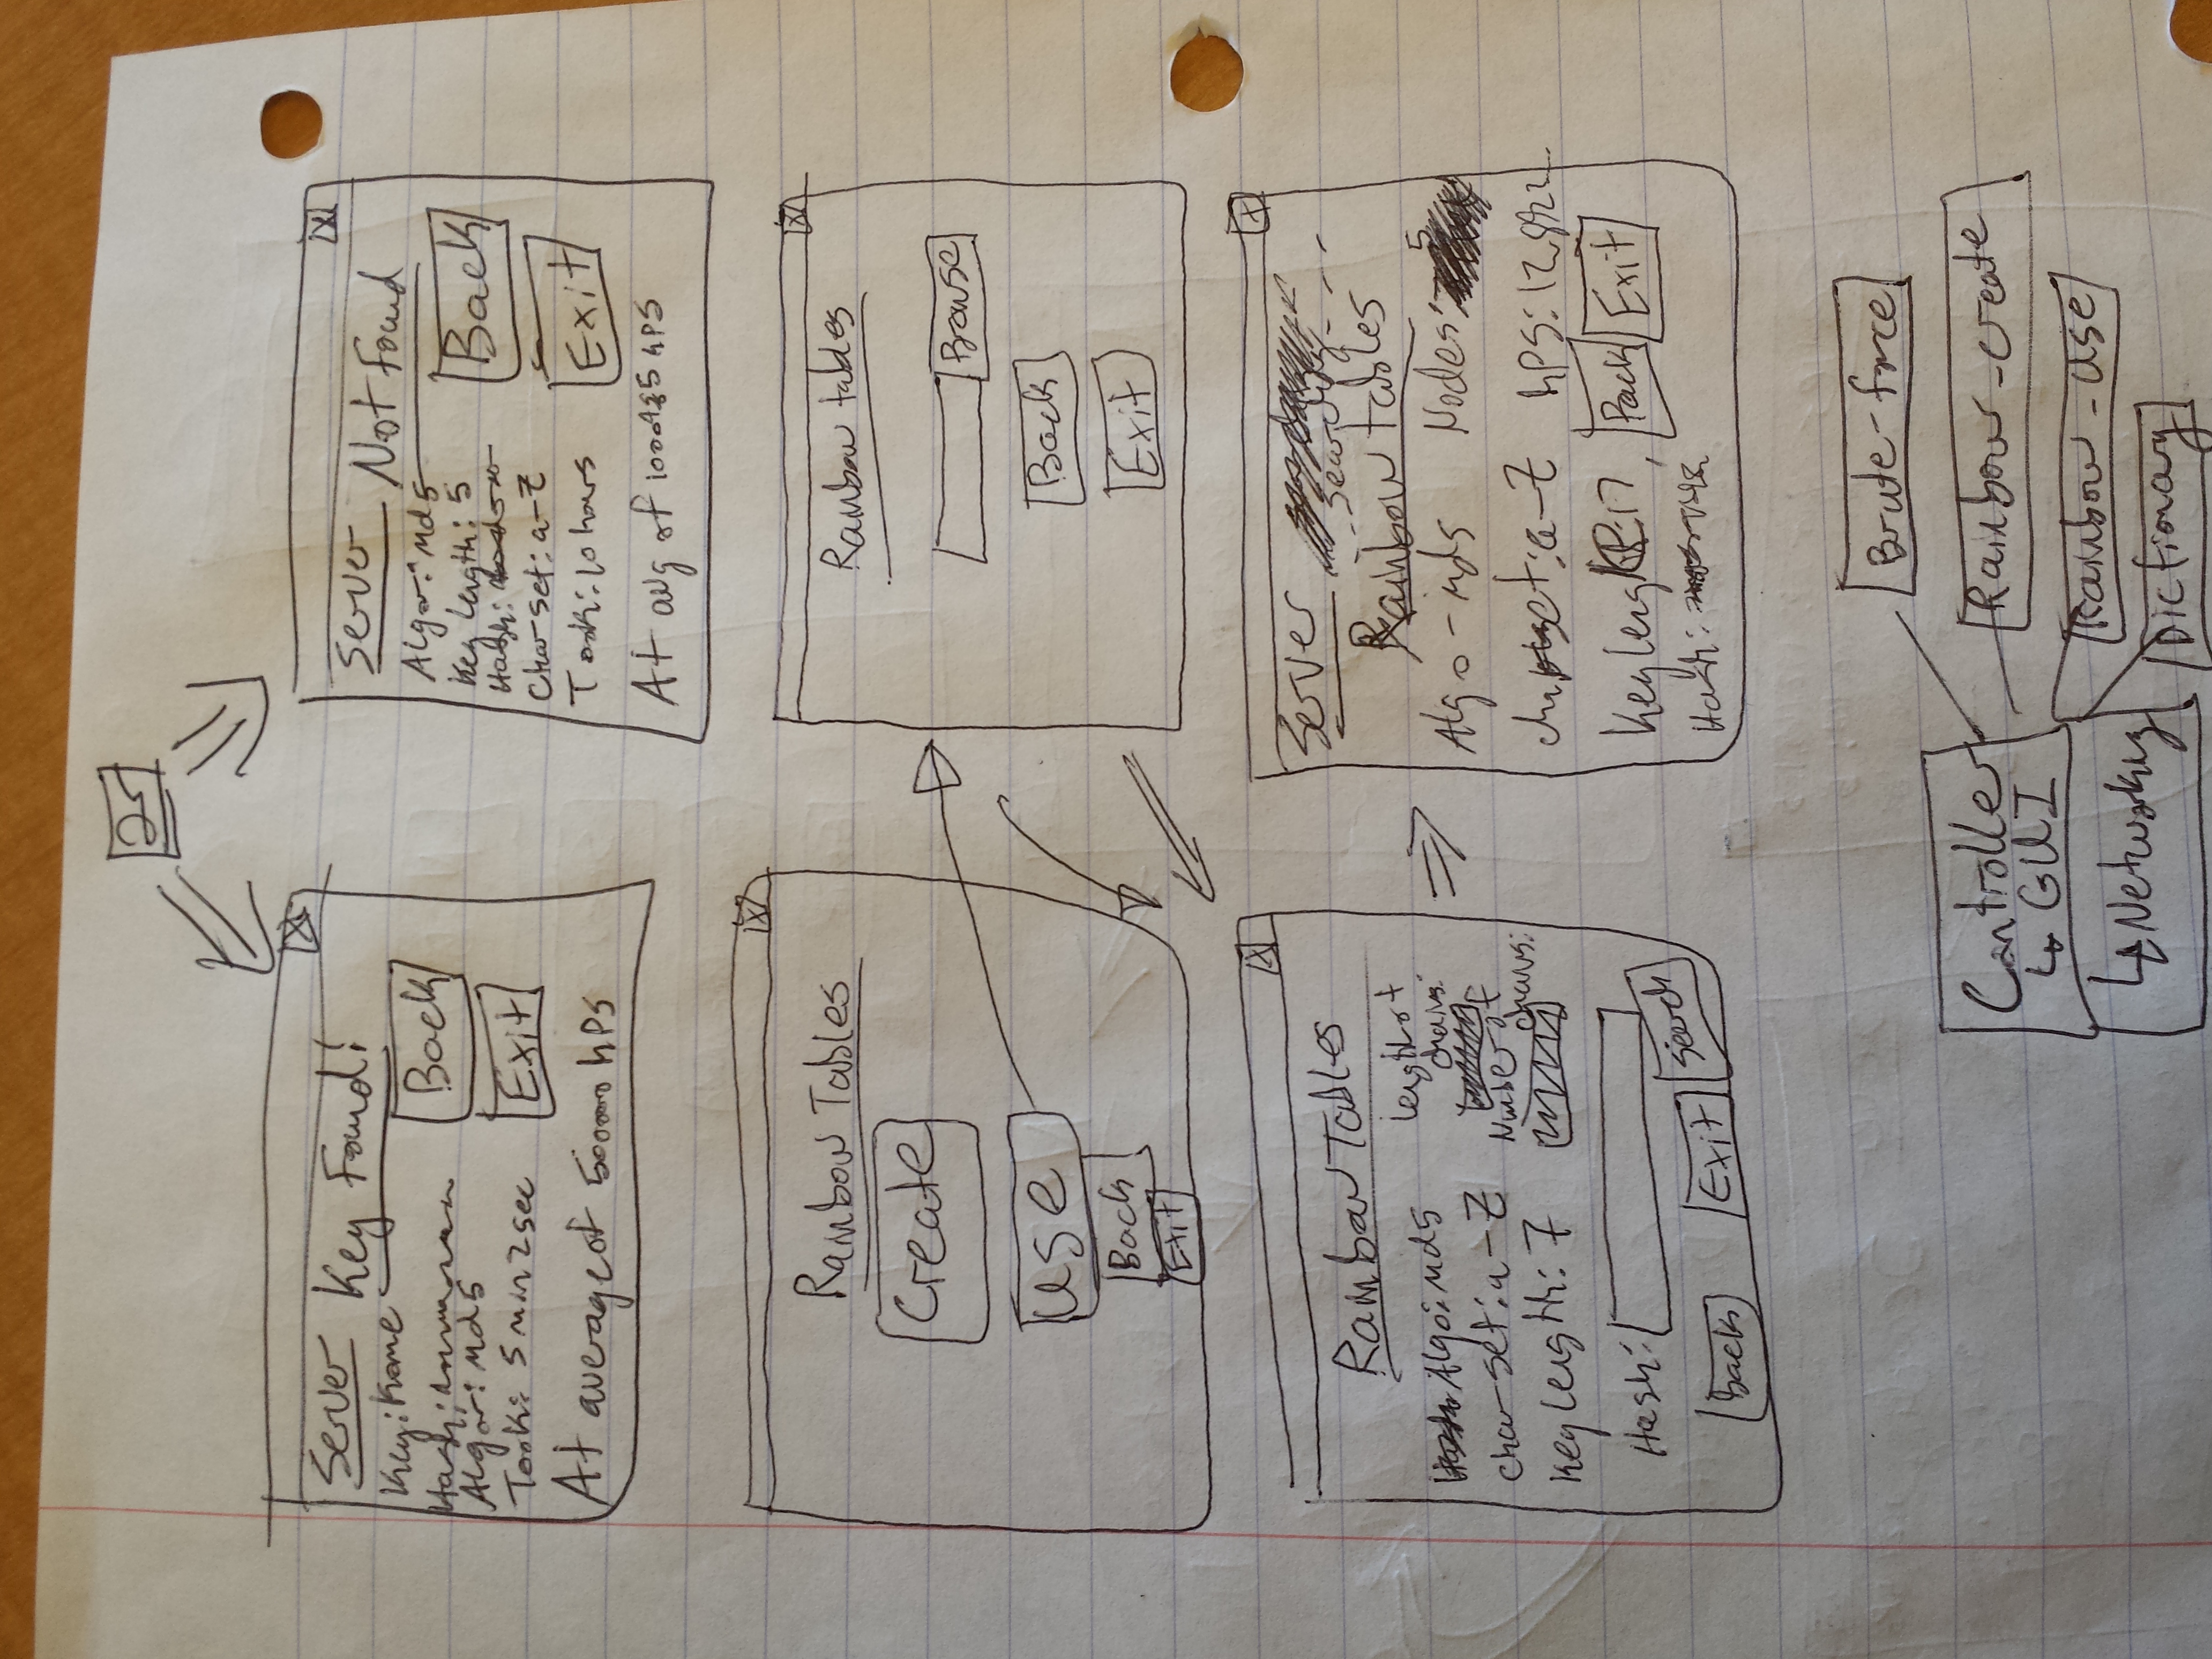 2
Server Key Found!
Key: Kame
Hash:
Algor: md5
Took: 5 min 2 sec
At average of 500000 hPS
Back
Exit
Server Not Found
Algor: md5
Key length: 5
Hash:
Char set: a-z
Took: 10 hours
At avg of hPS
Back
Exit
Rainbow Tables
Create
Use
Back
Exit
Rainbow tables
Browse
Back
Exit
Rainbow Tables
Algo: md5
char set: a-z
Key length: 7
length of
chains:
Number of
chains:
Hash:
Back
Exit
Search
Server
Searching...
Rainbow tables
Algo - md5
Nodes: 5
charset: a-z
hPS: 12,892
Key length: 17
Back
Exit
Hash:
Controller
↳ GUI
↳ Networking
Brute-force
Rainbow-create
Rainbow-use
Dictionary